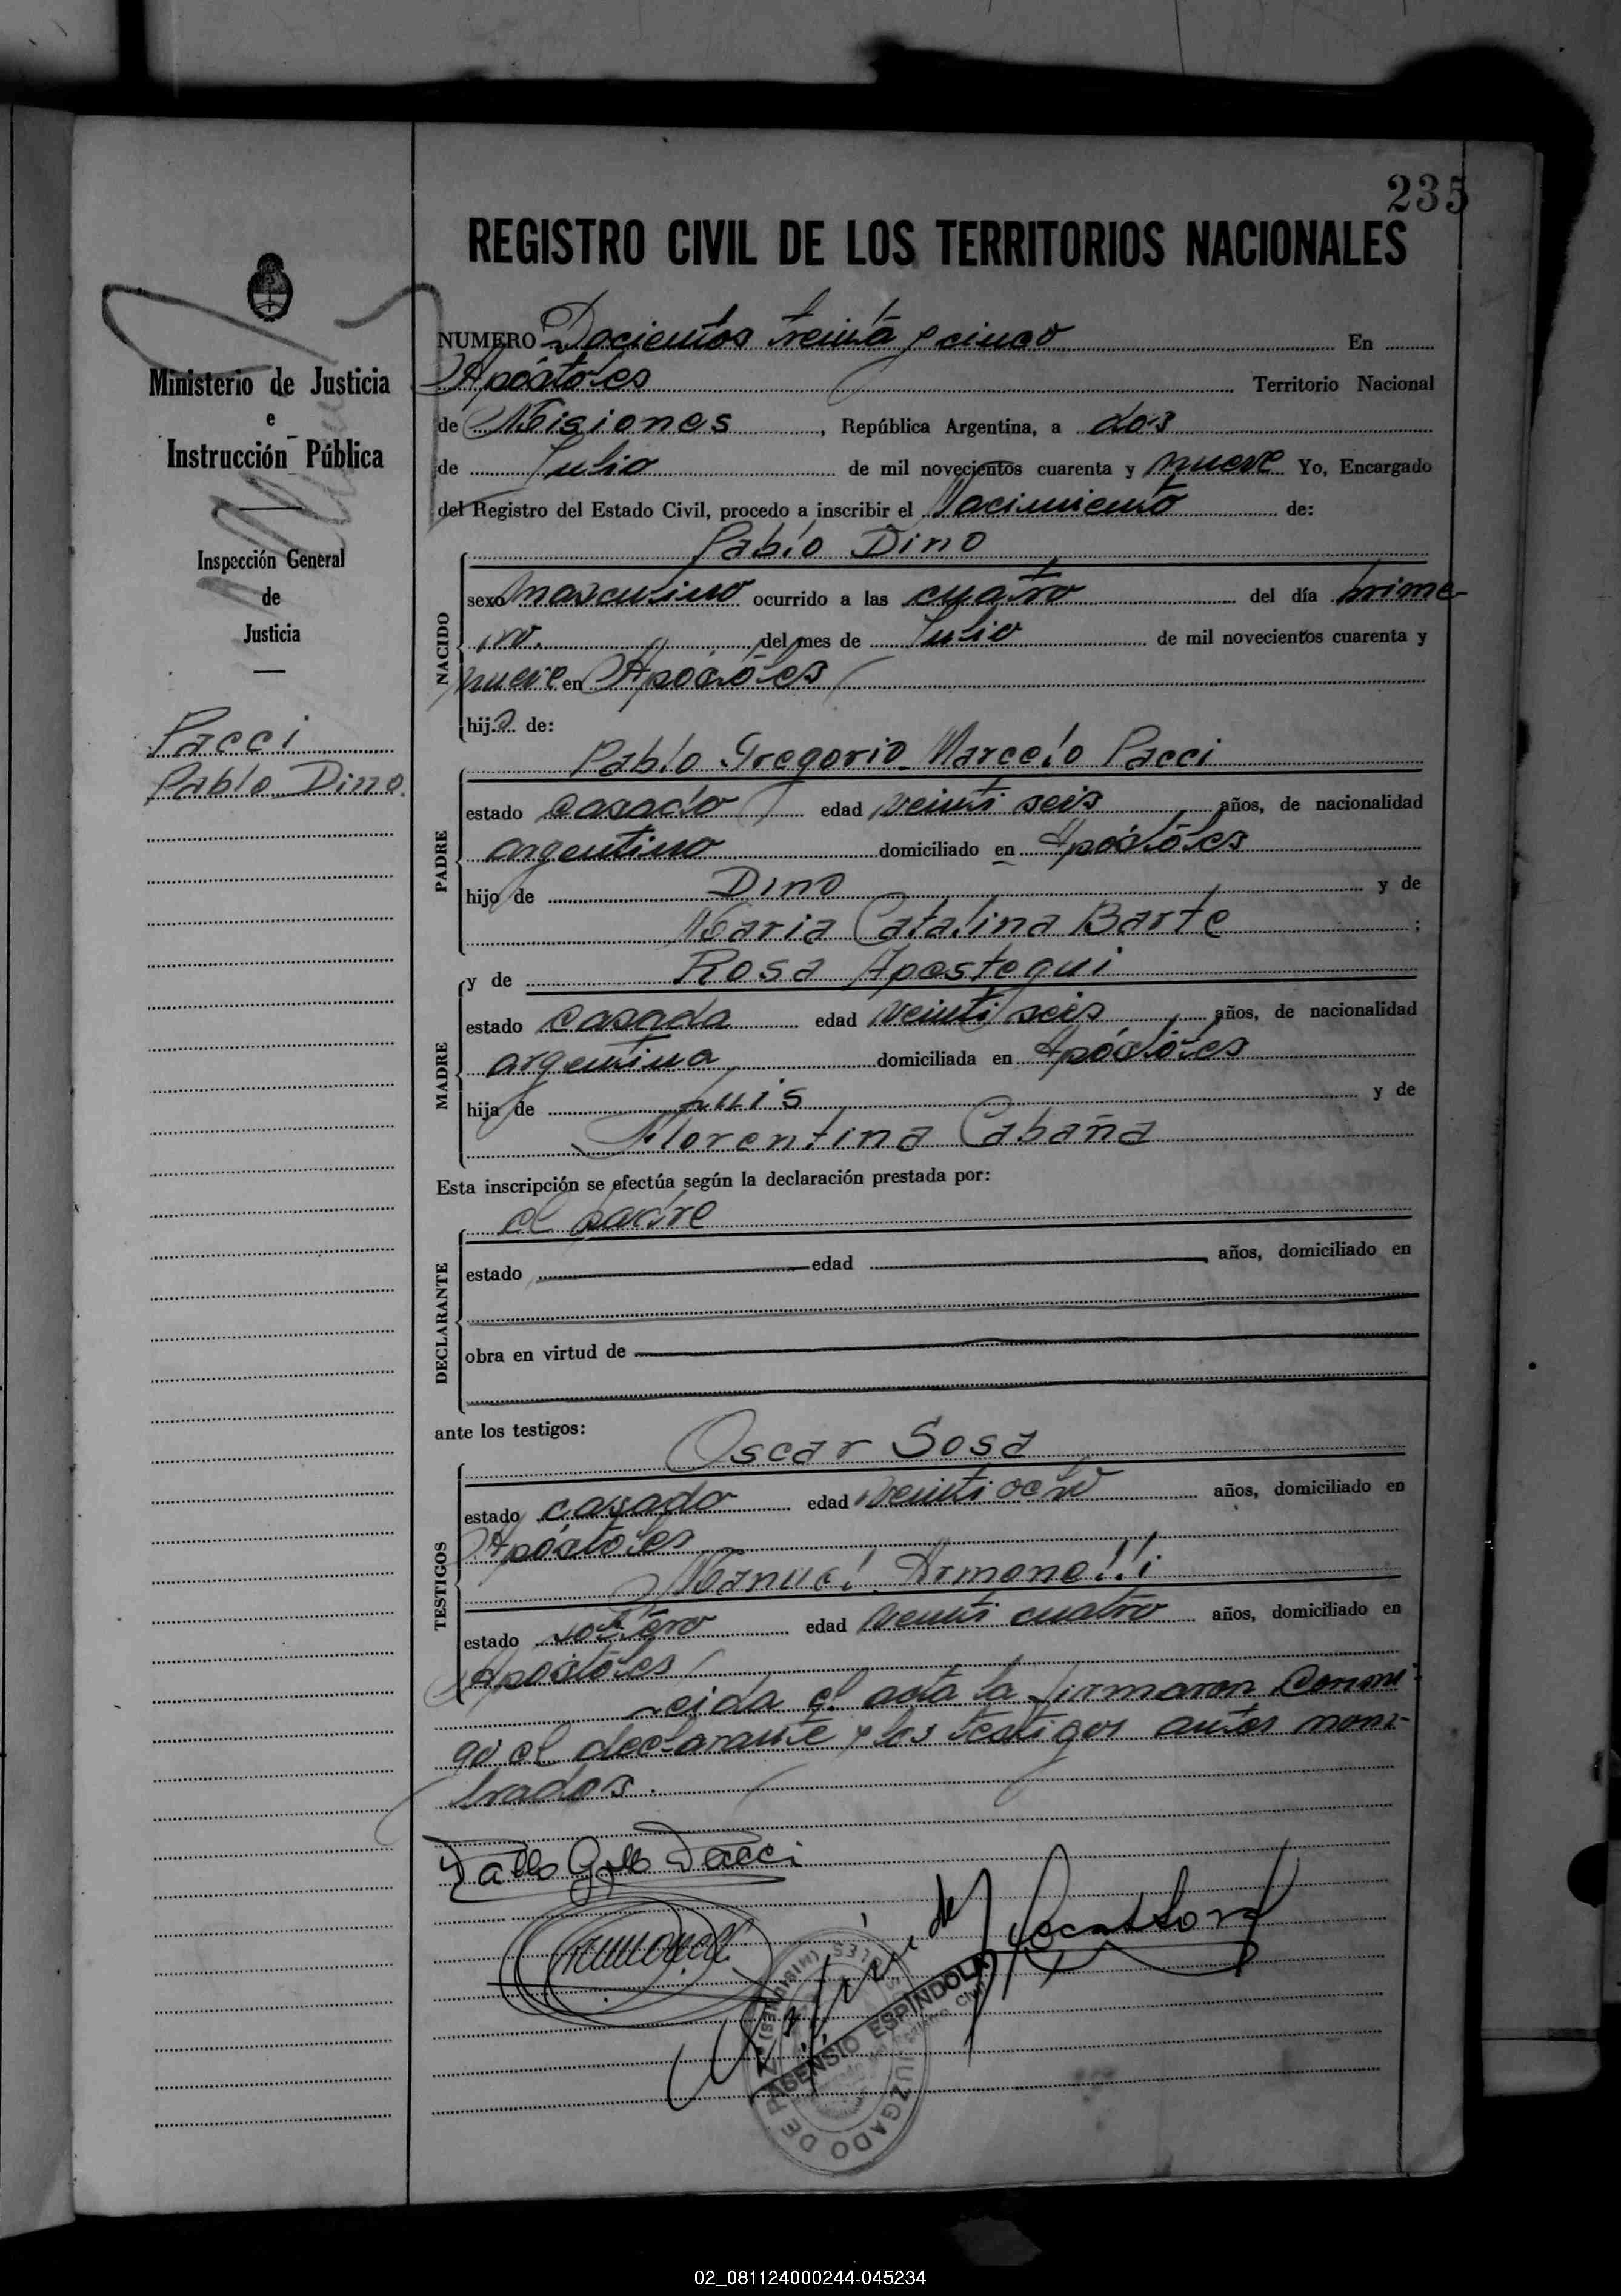 235
REGISTRO CIVIL DE LOS TERRITORIOS NACIONALES
Ministerio de Justicia
e
Instrucción Pública
Inspección General
de
Justicia
Pacci
Pablo Dino.
NUMERO Docientos treinta y cinco En
Apóstoles Territorio Nacional
de Misiones, República Argentina, a dos
de Julio de mil novecientos cuarenta y nueve Yo, Encargado
del Registro del Estado Civil, procedo a inscribir el Nacimiento de:
Pablo Dino
NACIDO
sexo masculino ocurrido a las cuatro del día prime-
ro. del mes de Julio de mil novecientos cuarenta y
nueve en Apóstoles
hijo de:
Pablo Gregorio Marcelo Pacci
PADRE
estado casado edad veinti seis años, de nacionalidad
argentino domiciliado en Apóstoles
hijo de Dino y de
Maria Catalina Barte;
y de Rosa Apestegui
MADRE
estado casada edad veinti seis años, de nacionalidad
argentina domiciliada en Apóstoles
hija de Luis y de
Florentina Cabaña
Esta inscripción se efectúa según la declaración prestada por:
el padre
DECLARANTE
estado edad años, domiciliado en
obra en virtud de
ante los testigos:
Oscar Sosa
TESTIGOS
estado casado edad veinti ocho años, domiciliado en
Apóstoles
Manuel Armanelli
estado soltero edad veinti cuatro años, domiciliado en
Apóstoles
Leida el acta la firmaron conmi-
go el declarante y los testigos antes nom-
brados.
Pablo Pacci
ASENSIO ESPINDOLA
JUZGADO DE PAZ
02_081124000244-045234